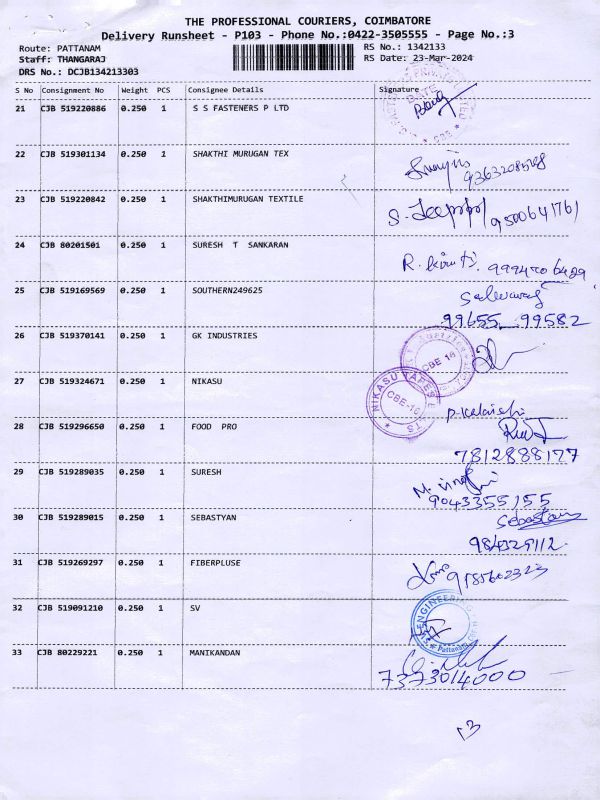 THE PROFESSIONAL COURIERS, COIMBATORE
Delivery Runsheet - P103 - Phone No.:0422-3505555 - Page No.:3
Route: PATTANAM RS No.: 1342133
Staff: THANGARAJ RS Date: 23-Mar-2024
DRS No.: DCJB134213303
S No Consignment No Weight PCS Consignee Details Signature
21 CJB 519220886 0.250 1 S S FASTENERS P LTD
22 CJB 519301134 0.250 1 SHAKTHI MURUGAN TEX
23 CJB 519220842 0.250 1 SHAKTHIMURUGAN TEXTILE
9500641761
24 CJB 80201501 0.250 1 SURESH T SANKARAN
25 CJB 519169569 0.250 1 SOUTHERN249625
99655 99582
26 CJB 519370141 0.250 1 GK INDUSTRIES
CBE 16
27 CJB 519324671 0.250 1 NIKASU
NIKASU
CBE-16
28 CJB 519296650 0.250 1 FOOD PRO
7812888177
29 CJB 519289035 0.250 1 SURESH
9043355155
30 CJB 519289015 0.250 1 SEBASTYAN
31 CJB 519269297 0.250 1 FIBERPLUSE
32 CJB 519091210 0.250 1 SV
ENGINEERING
Pattanam
33 CJB 80229221 0.250 1 MANIKANDAN
7373014000